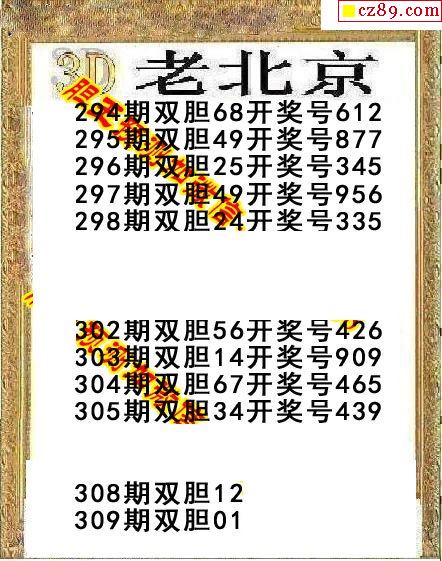 cz89.com
3D 老北京
294期双胆68开奖号612
295期双胆49开奖号877
296期双胆25开奖号345
297期双胆49开奖号956
298期双胆24开奖号335
302期双胆56开奖号426
303期双胆14开奖号909
304期双胆67开奖号465
305期双胆34开奖号439
308期双胆12
309期双胆01